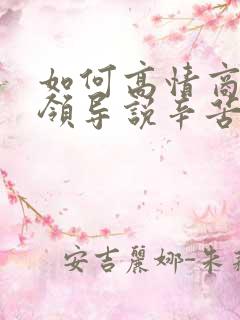 如何高情商
領导說辛苦
安吉麗娜-朱